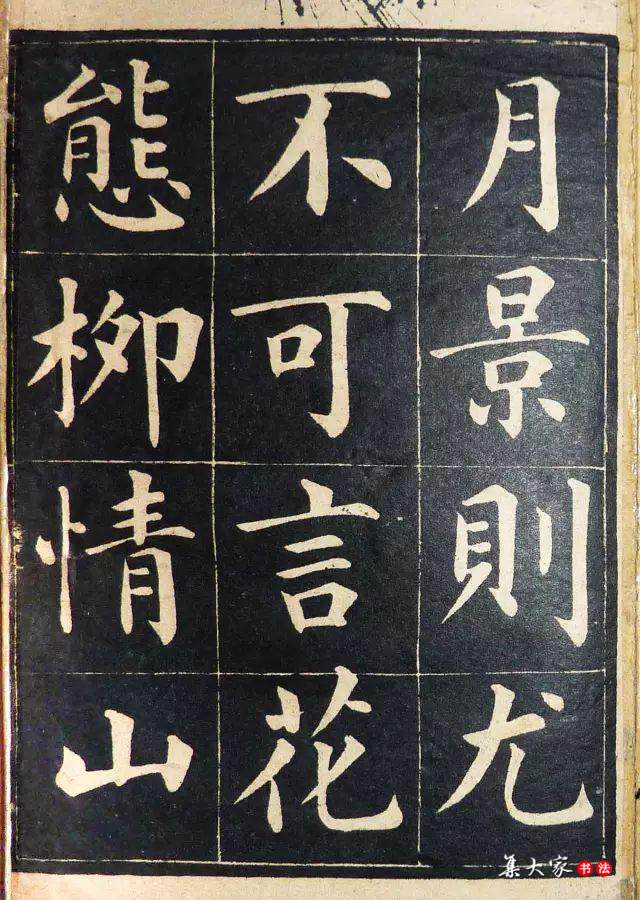 月景則尤
不可言花
態柳情山
集大家书法